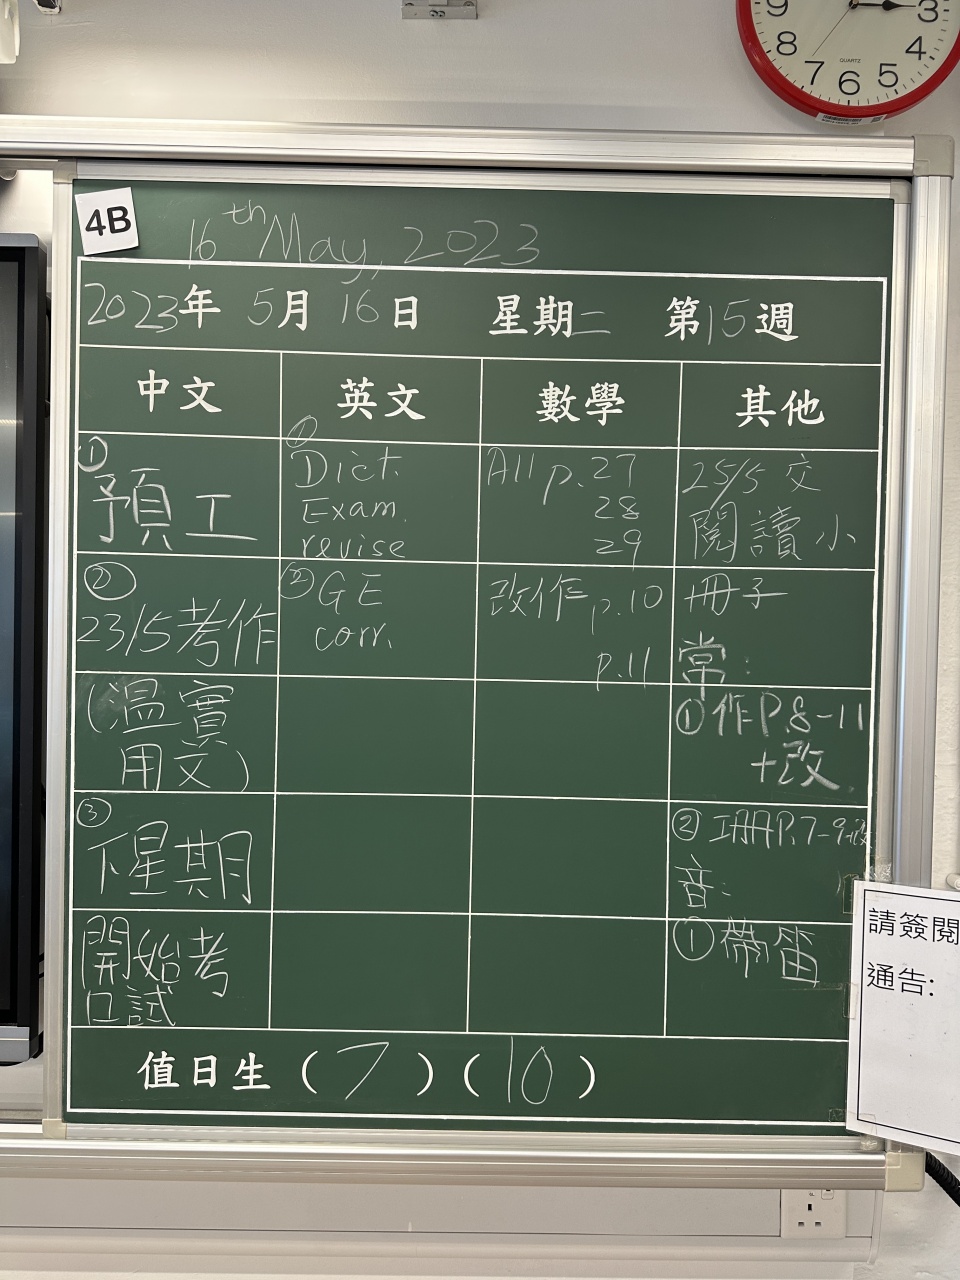 9
3
8
4
QUARTZ
7
6
5
4B
16th May, 2023
2023年 5月 16日 星期二 第15週
中文
英文
數學
其他
①
預工
②
23/5考作
(溫實
用文)
③
下星期
開始考
口試
①
Dict.
Exam.
revise
② GE
corr.
All p.27
28
29
改作 p.10
p.11
25/5 交
閱讀小
冊子
常:
①作P.8-11
+改
②工冊P.7-9改
音:
①帶笛
值日生 (7)(10)
請簽閱
通告: